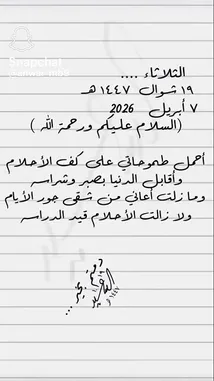 Snapchat
الثلاثاء ....
١٩ شوال ١٤٤٧ هـ
٧ أبريل 2026
(السلام عليكم ورحمة الله )
أحمل طموحاتي على كف الأحلام
وأقابل الدنيا بصبر وشراسه
وما زلت أعاني من شقى جور الأيام
ولا زالت الأحلام قيد الدراسه
دمتم بخير ...